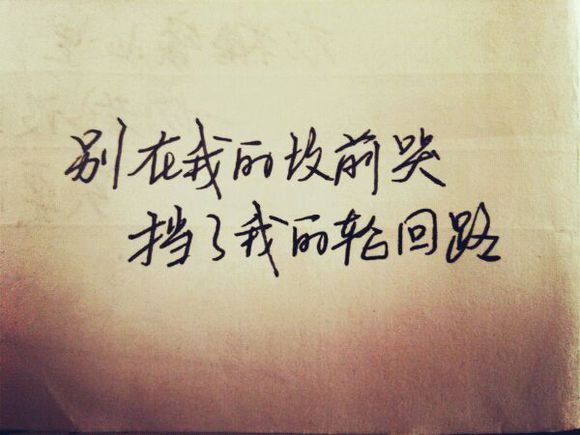 别在我的坟前哭
挡了我的轮回路